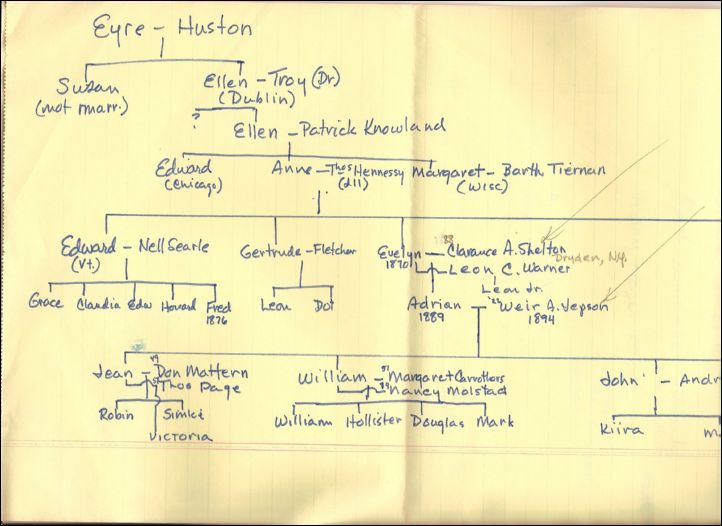 Eyre - Huston
Susan Ellen - Troy (Dr)
(not marr.) (Dublin)
?
Ellen - Patrick Knowland
Edward Anne - Thos Hennessy Margaret - Barth Tiernan
(Chicago) (Ill) (Wisc)
Edward - Nell Searle Gertrude - Fletcher Evelyn - Clarance A. Shelton
(Vt.) 1870 Dryden, N.Y.
Leon C. Warner
Leon Jr.
Grace Claudia Edw Howard Fred Leon Dot Adrian - '22 Weir A. Jepson
1876 1889 1894
Jean - '49 Don Mattern William - '51 Margaret Carrothers John - Andr
Thos Page Nancy Molstad
Robin Simkie William Hollister Douglas Mark Kiira m
Victoria